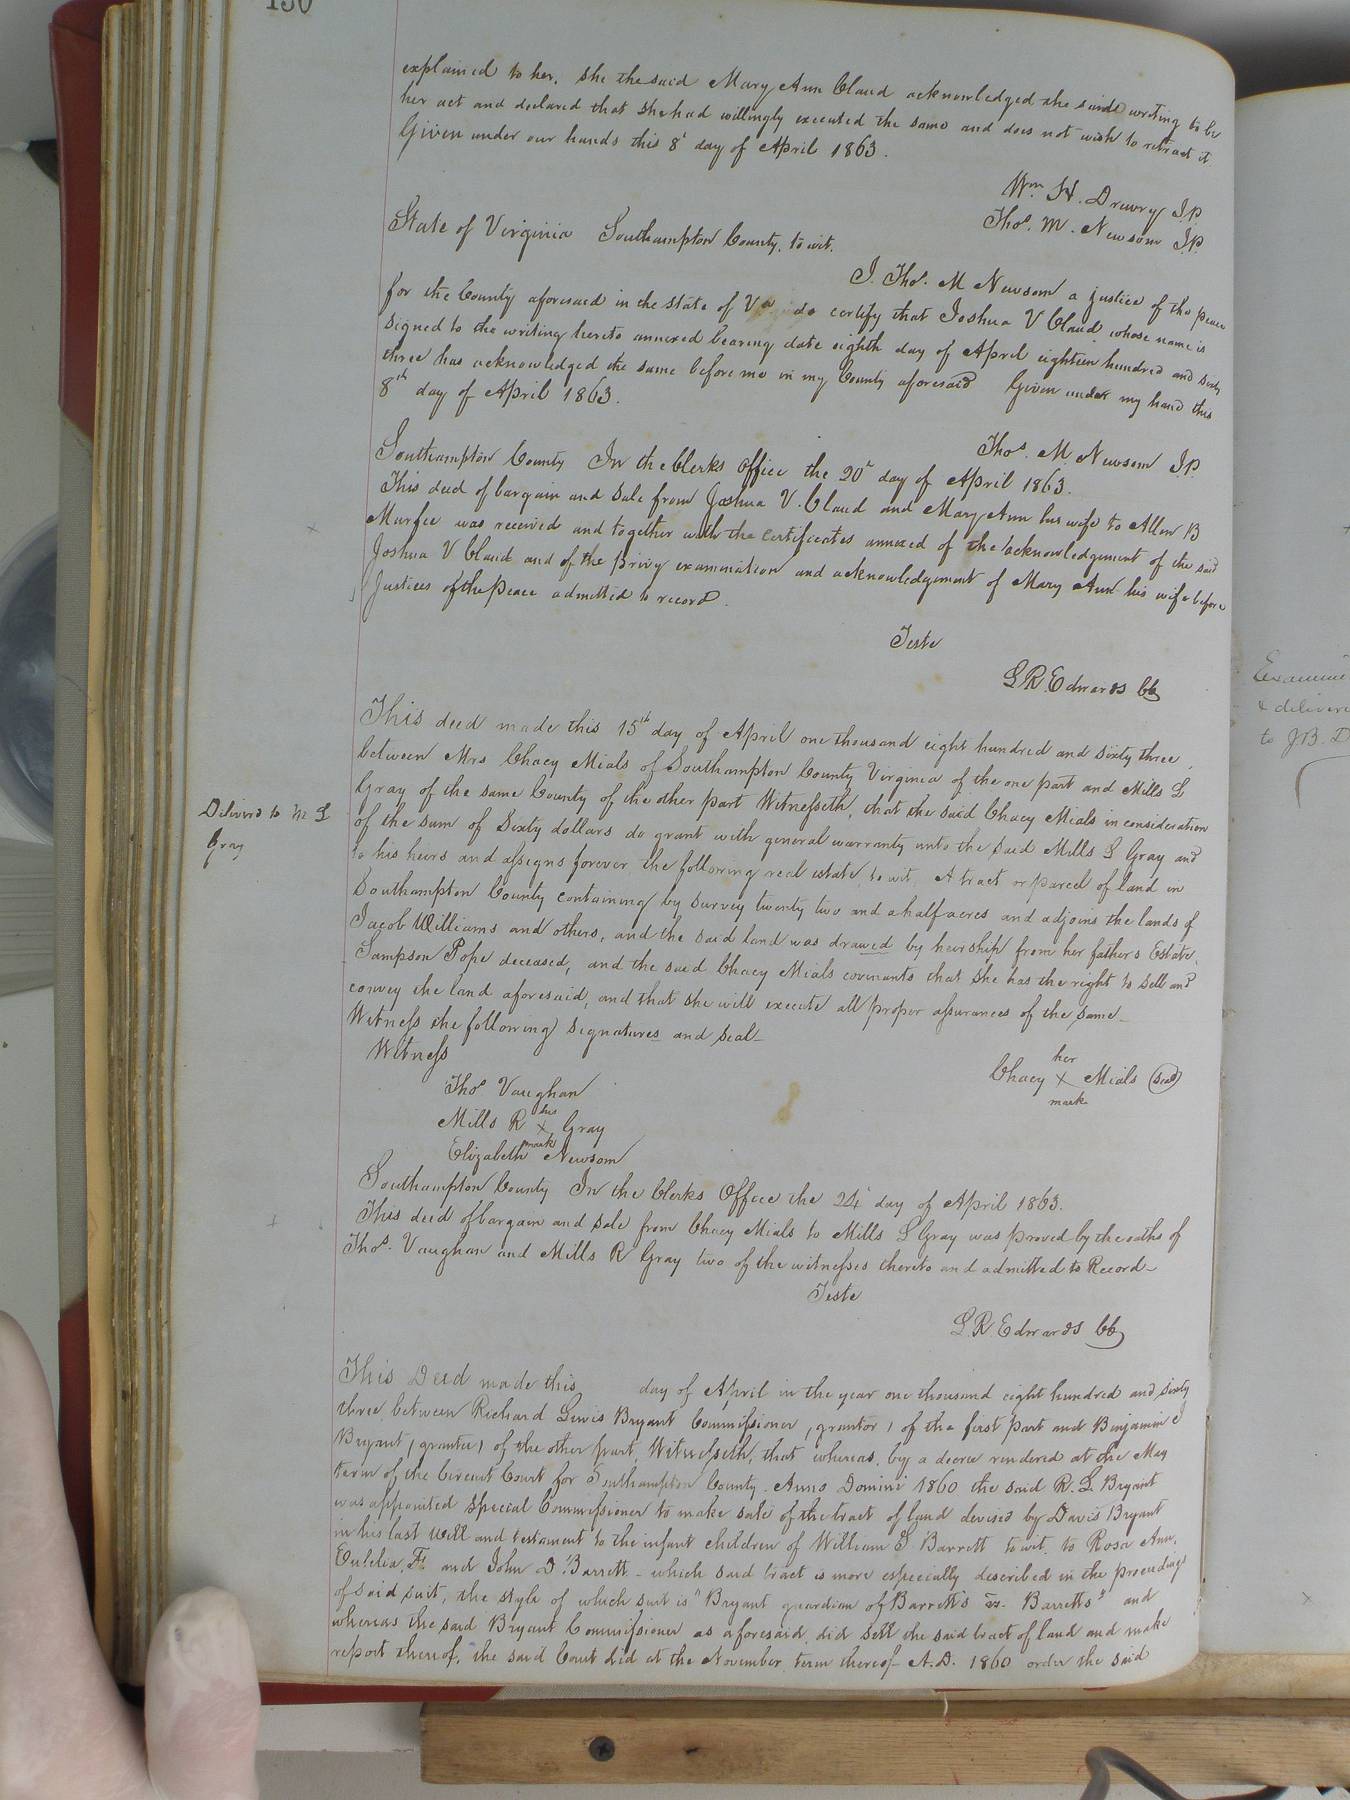 130
explained to her, she the said Mary Ann Claud acknowledged the said writing to be
her act and declared that she had willingly executed the same and does not wish to retract it
Given under our hands this 8th day of April 1863.
Wm. H. Drewry J.P.
Thos. M. Newsom J.P.
State of Virginia Southampton County, to wit.
I. Thos. M Newsom a justice of the peace
for the County aforesaid in the State of Va do certify that Joshua V Claud whose name is
signed to the writing hereto annexed bearing date eighth day of April eighteen hundred and sixty
three has acknowledged the same before me in my County aforesaid Given under my hand this
8th day of April 1863.
Thos. M. Newsom J.P.
Southampton County In the Clerks Office the 20th day of April 1863.
This deed of bargain and sale from Joshua V. Claud and Mary Ann his wife to Allen B
Murfee was received and together with the certificates annexed of the acknowledgement of the said
Joshua V Claud and of the privy examination and acknowledgement of Mary Ann his wife before
Justices of the peace admitted to record.
Teste
L R Edwards CC
This deed made this 15th day of April one thousand eight hundred and sixty three,
between Mrs Chacy Mials of Southampton County Virginia of the one part and Mills L
Gray of the same County of the other part Witnesseth, that the said Chacy Mials in consideration
of the sum of Sixty dollars do grant with general warranty unto the said Mills L Gray and
to his heirs and assigns forever the following real estate, to wit, A tract or parcel of land in
Southampton County containing by survey twenty two and a half acres and adjoins the lands of
Jacob Williams and others, and the said land was drawed by heirship from her fathers Estate,
Sampson Pope deceased, and the said Chacy Mials covenants that she has the right to sell and
convey the land aforesaid, and that she will execute all proper assurances of the same
Witness the following signatures and seal
Delivered to M L
Gray
Witness
Thos Vaughan
Mills R his x mark Gray
Elizabeth Newsom
Chacy her x mark Mials (Seal)
Southampton County In the Clerks Office the 24th day of April 1863.
This deed of bargain and sale from Chacy Mials to Mills L Gray was proved by the oaths of
Thos. Vaughan and Mills R Gray two of the witnesses thereto and admitted to Record
Teste
L. R Edwards CC
This Deed made this day of April in the year one thousand eight hundred and sixty
three, between Richard Lewis Bryant Commissioner, (grantor) of the first part and Benjamin E
Bryant, (grantee) of the other part, Witnesseth, that whereas, by a decree rendered at the May
term of the Circuit Court for Southampton County. Anno Domini 1860 the said R. L. Bryant
was appointed special Commissioner to make sale of the tract of land devised by Davis Bryant
in his last will and testament to the infant children of William S. Barrett to wit, to Rosa Ann,
and John D Barrett - which said tract is more especially described in the proceedings
of said suit, the style of which suit is "Bryant guardian of Barretts vs. Barretts" and
whereas the said Bryant Commissioner as aforesaid, did sell the said tract of land and make
report thereof, the said Court did at the November term thereof A.D. 1860 order the said
& delivered
to J.B. D